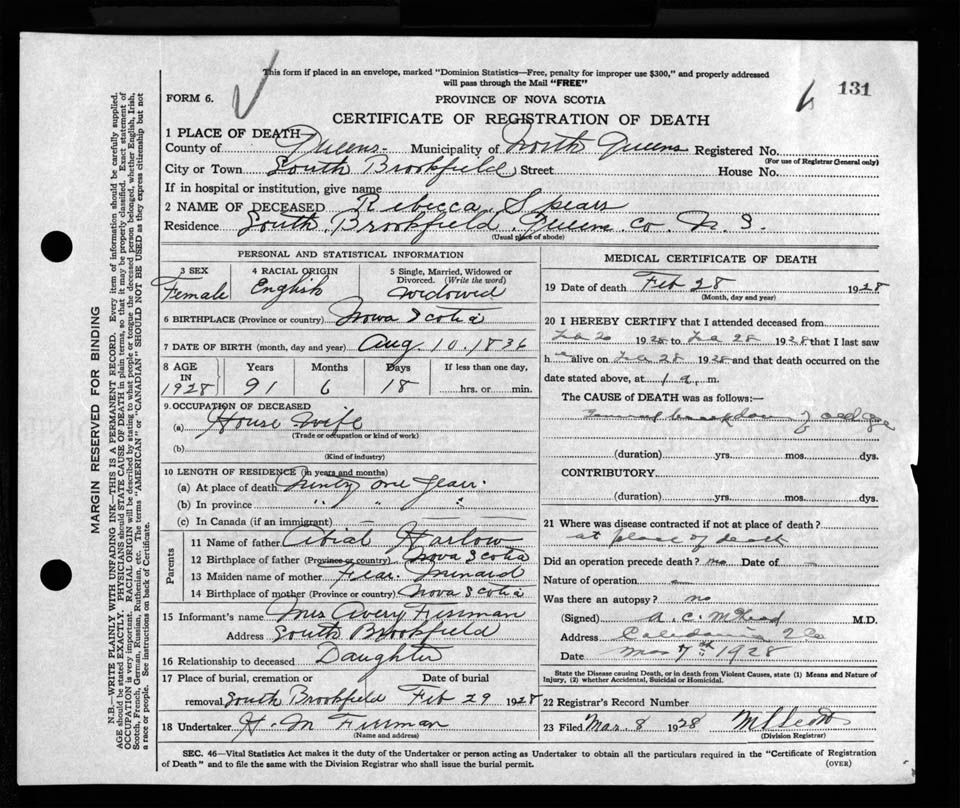 This form if placed in an envelope, marked "Dominion Statistics—Free, penalty for improper use $300," and properly addressed
will pass through the Mail "FREE"
131
FORM 6.
PROVINCE OF NOVA SCOTIA
CERTIFICATE OF REGISTRATION OF DEATH
1 PLACE OF DEATH—
County of Queens Municipality of North Queens Registered No.
(For use of Registrar General only)
City or Town South Brookfield Street House No.
If in hospital or institution, give name
2 NAME OF DECEASED Rebecca Spears
Residence South Brookfield Queens Co. N. S.
(Usual place of abode)
PERSONAL AND STATISTICAL INFORMATION
3 SEX 4 RACIAL ORIGIN 5 Single, Married, Widowed or Divorced. (Write the word)
Female English Widowed
6 BIRTHPLACE (Province or country) Nova Scotia
7 DATE OF BIRTH (month, day and year) Aug 10. 1836
8 AGE IN 1928 Years 91 Months 6 Days 18 If less than one day, hrs. or min.
9. OCCUPATION OF DECEASED
(a) House Wife
(Trade or occupation or kind of work)
(b)
(Kind of industry)
10 LENGTH OF RESIDENCE (in years and months)
(a) At place of death Ninty one Years
(b) In province " " "
(c) In Canada (if an immigrant) — —
Parents
11 Name of father Abial Harlow
12 Birthplace of father (Province or country) Nova Scotia
13 Maiden name of mother Fear
14 Birthplace of mother (Province or country) Nova Scotia
15 Informant's name Mrs Avery
Address South Brookfield
16 Relationship to deceased Daughter
17 Place of burial, cremation or removal Date of burial
South Brookfield Feb 29 1928
18 Undertaker H. M
(Name and address)
MEDICAL CERTIFICATE OF DEATH
19 Date of death Feb 28 1928
(Month, day and year)
20 I HEREBY CERTIFY that I attended deceased from
Feb 20 1928 to Feb 28 1928 that I last saw
h alive on Feb 28 1928 and that death occurred on
date stated above, at 1 a. m.
The CAUSE of DEATH was as follows:—
breakdown of old age
(duration) yrs. mos. dys.
CONTRIBUTORY
(duration) yrs. mos. dys.
21 Where was disease contracted if not at place of death?
at place of death
Did an operation precede death? no Date of —
Nature of operation —
Was there an autopsy? no
(Signed) A. C. M.D.
Address Caledonia
Date Mar 7th 1928
State the Disease causing Death, or in death from Violent Causes, state (1) Means and Nature of Injury, (2) whether Accidental, Suicidal or Homicidal.
22 Registrar's Record Number
23 Filed Mar. 8 1928
(Division Registrar)
SEC. 46—Vital Statistics Act makes it the duty of the Undertaker or person acting as Undertaker to obtain all the particulars required in the "Certificate of Registration
of Death" and to file the same with the Division Registrar who shall issue the burial permit.
(OVER)
MARGIN RESERVED FOR BINDING
N.B.—WRITE PLAINLY WITH UNFADING INK—THIS IS A PERMANENT RECORD. Every item of information should be carefully supplied.
AGE should be stated EXACTLY. PHYSICIANS should STATE CAUSE OF DEATH in plain terms, so that it may be properly classified. Exact statement of
OCCUPATION is very important. RACIAL ORIGIN will be described by stating to what people or tongue the deceased person belonged, whether English, Irish,
Scotch, French, German, Russian, Ruthenian, etc. The terms "AMERICAN" or "CANADIAN" SHOULD NOT BE USED as they express citizenship but not
a race or people. See instructions on back of Certificate.